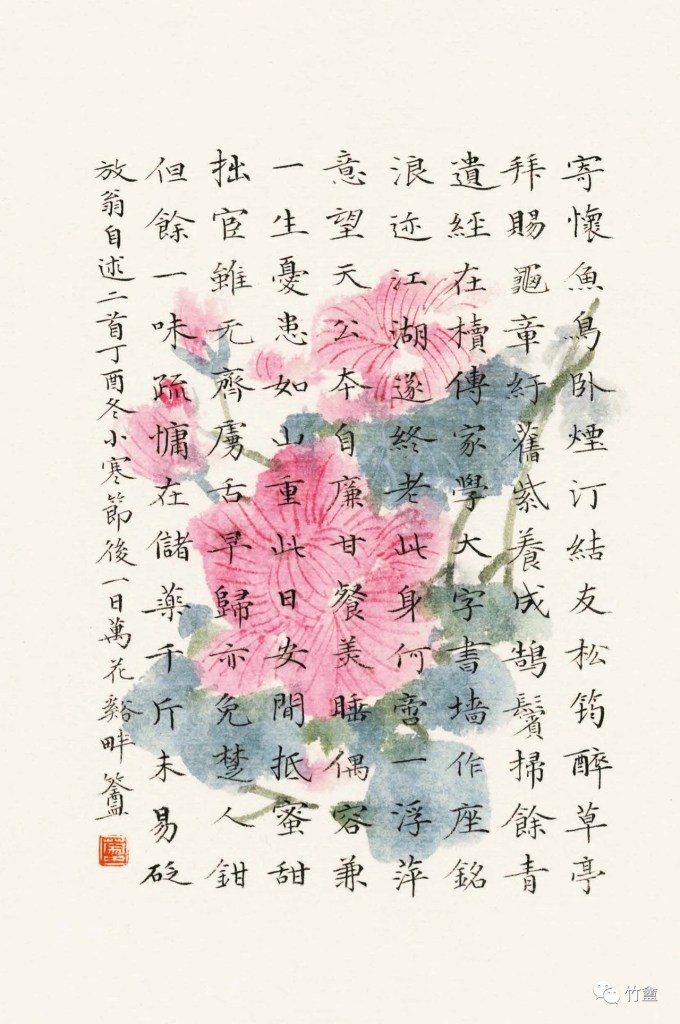 寄懷魚鳥卧煙汀結友松筠醉草亭
拜賜龜章紆舊紫養成鵠鬢掃餘青
遺經在櫝傳家學大字書墻作座銘
浪迹江湖遂終老此身何啻一浮萍
意望天公本自廉甘餐美睡偶容兼
一生憂患如山重此日安閒抵蜜甜
拙宦雖无齊虜舌早歸亦免楚人鉗
但餘一味疏慵在儲藥千斤未易砭
放翁自述二首丁酉冬小寒節後一日萬花谿畔
竹盦